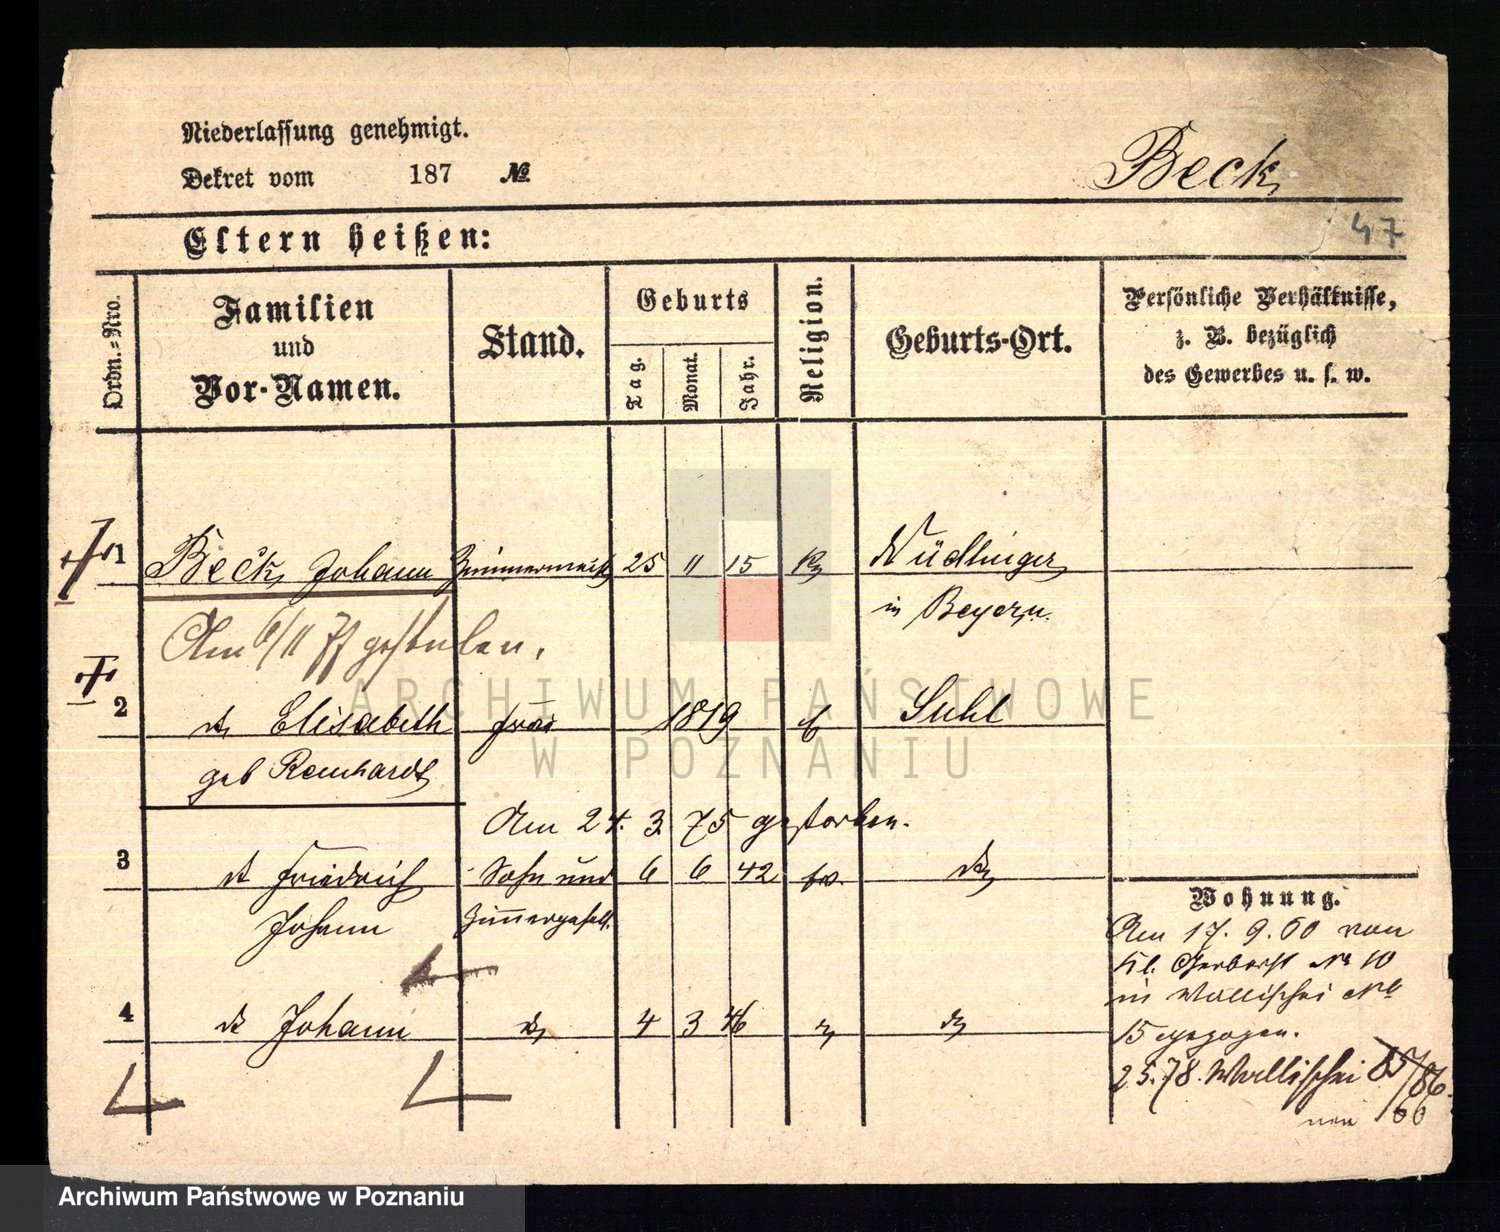 Niederlassung genehmigt.
Dekret vom 187 №
Beck
47
Eltern heißen:
Ordn.-Nro.
Familien
und
Vor-Namen.
Stand.
Geburts
Tag.
Monat.
Jahr.
Religion.
Geburts-Ort.
Persönliche Verhältnisse,
z. B. bezüglich
des Gewerbes u. s. w.
1 Beck Johann 25 11 15
in Beyern.
Am 6/11 77 gestorben.
2 Elisabeth Frau 1819 Suhl
geb Reinhardt
Am 24. 3. 75 gestorben.
3 Friedrich Sohn und 6 6 42
Johann Zimmergesell.
4 Johann 4 3 46
Wohnung.
Am 17. 9. 60 von
Kl. Gerberst No 10
in Wallischei No
15 gezogen.
2 5. 78. Wallischei 85/86.
neu 66
ARCHIWUM PAŃSTWOWE
W POZNANIU
Archiwum Państwowe w Poznaniu